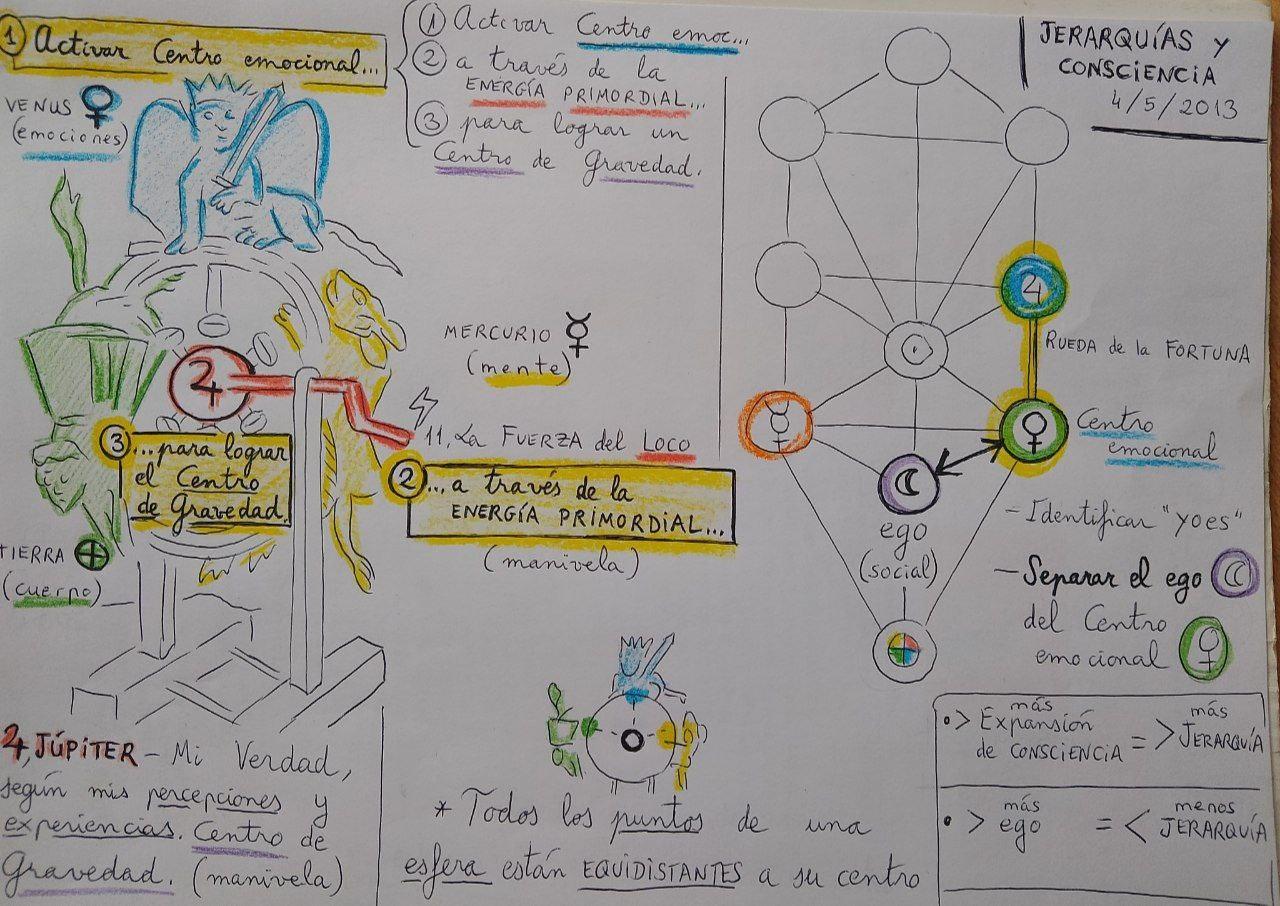 ① Activar Centro emocional...
VENUS ♀
(emociones)
① Activar Centro emoc...
② a través de la
ENERGÍA PRIMORDIAL...
③ para lograr un
Centro de Gravedad.
JERARQUÍAS Y
CONSCIENCIA
4/5/2013
MERCURIO ☿
(mente)
11, La FUERZA del LOCO
② ...a través de la
ENERGÍA PRIMORDIAL...
(manivela)
♃
③ ...para lograr
el Centro
de Gravedad.
TIERRA ⊕
(cuerpo)
♃, JÚPITER – Mi Verdad,
según mis percepciones y
experiencias. Centro de
Gravedad. (manivela)
* Todos los puntos de una
esfera están EQUIDISTANTES a su centro
♃
RUEDA de la FORTUNA
☉
☿
♀
Centro
emocional
☾
ego
(social)
– Identificar "yoes"
– Separar el ego ☾
del Centro
emocional ♀
más más
• > Expansión = > JERARQUÍA
de CONSCIENCIA
más menos
• > ego = < JERARQUÍA